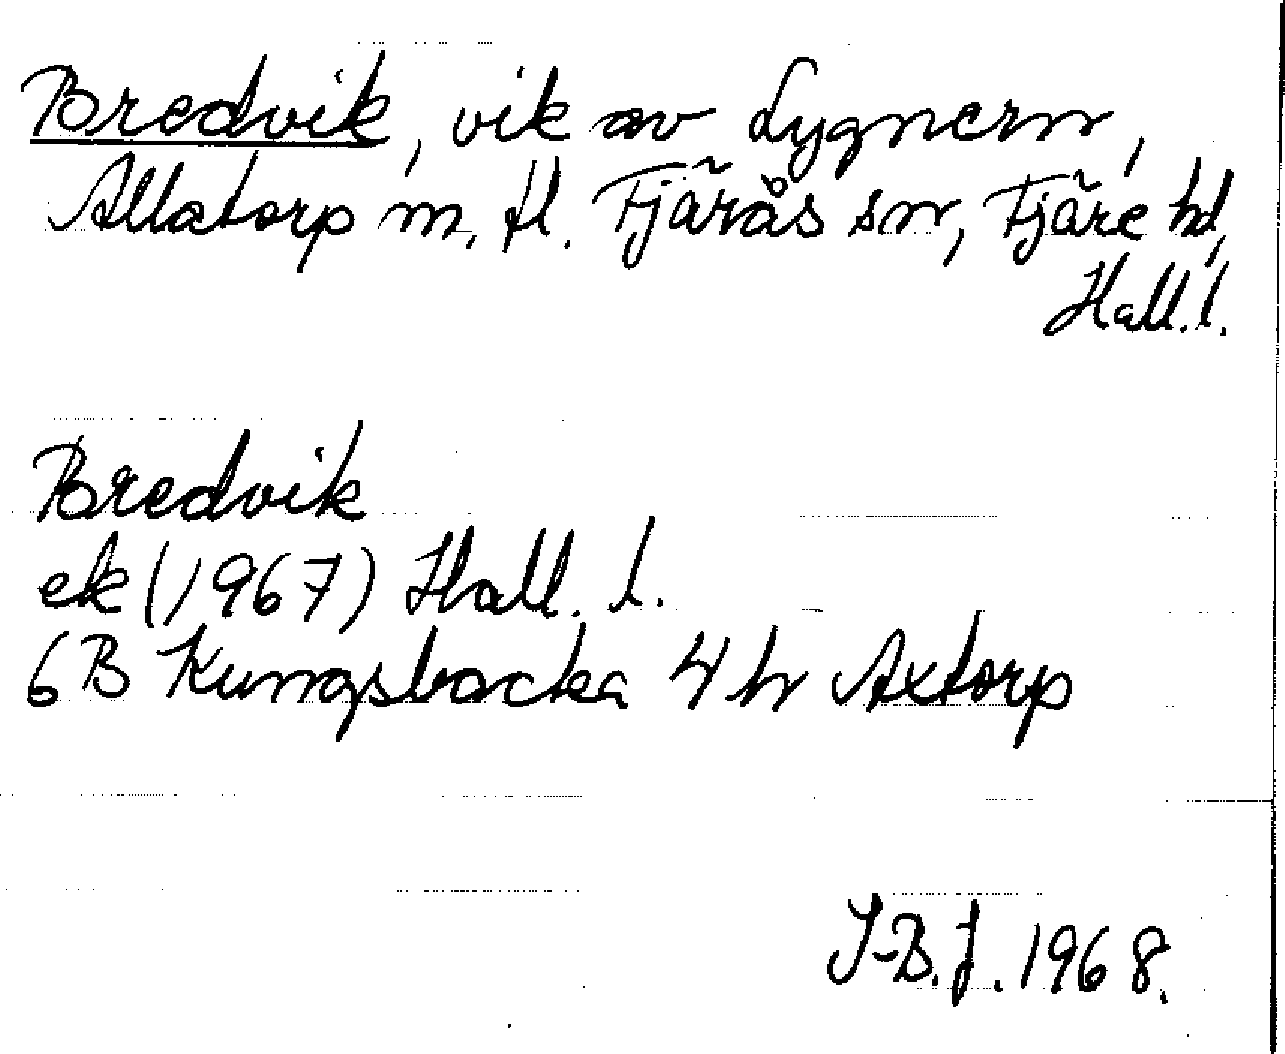 Bredvik, vik av Lygnern,
Allatorp m. fl. Fjärås sn, Fjäre hd,
Hall. l.
Bredvik
ek (1967) Hall. l.
6B Kungsbacka 4 h Axtorp
I-B. J. 1968.